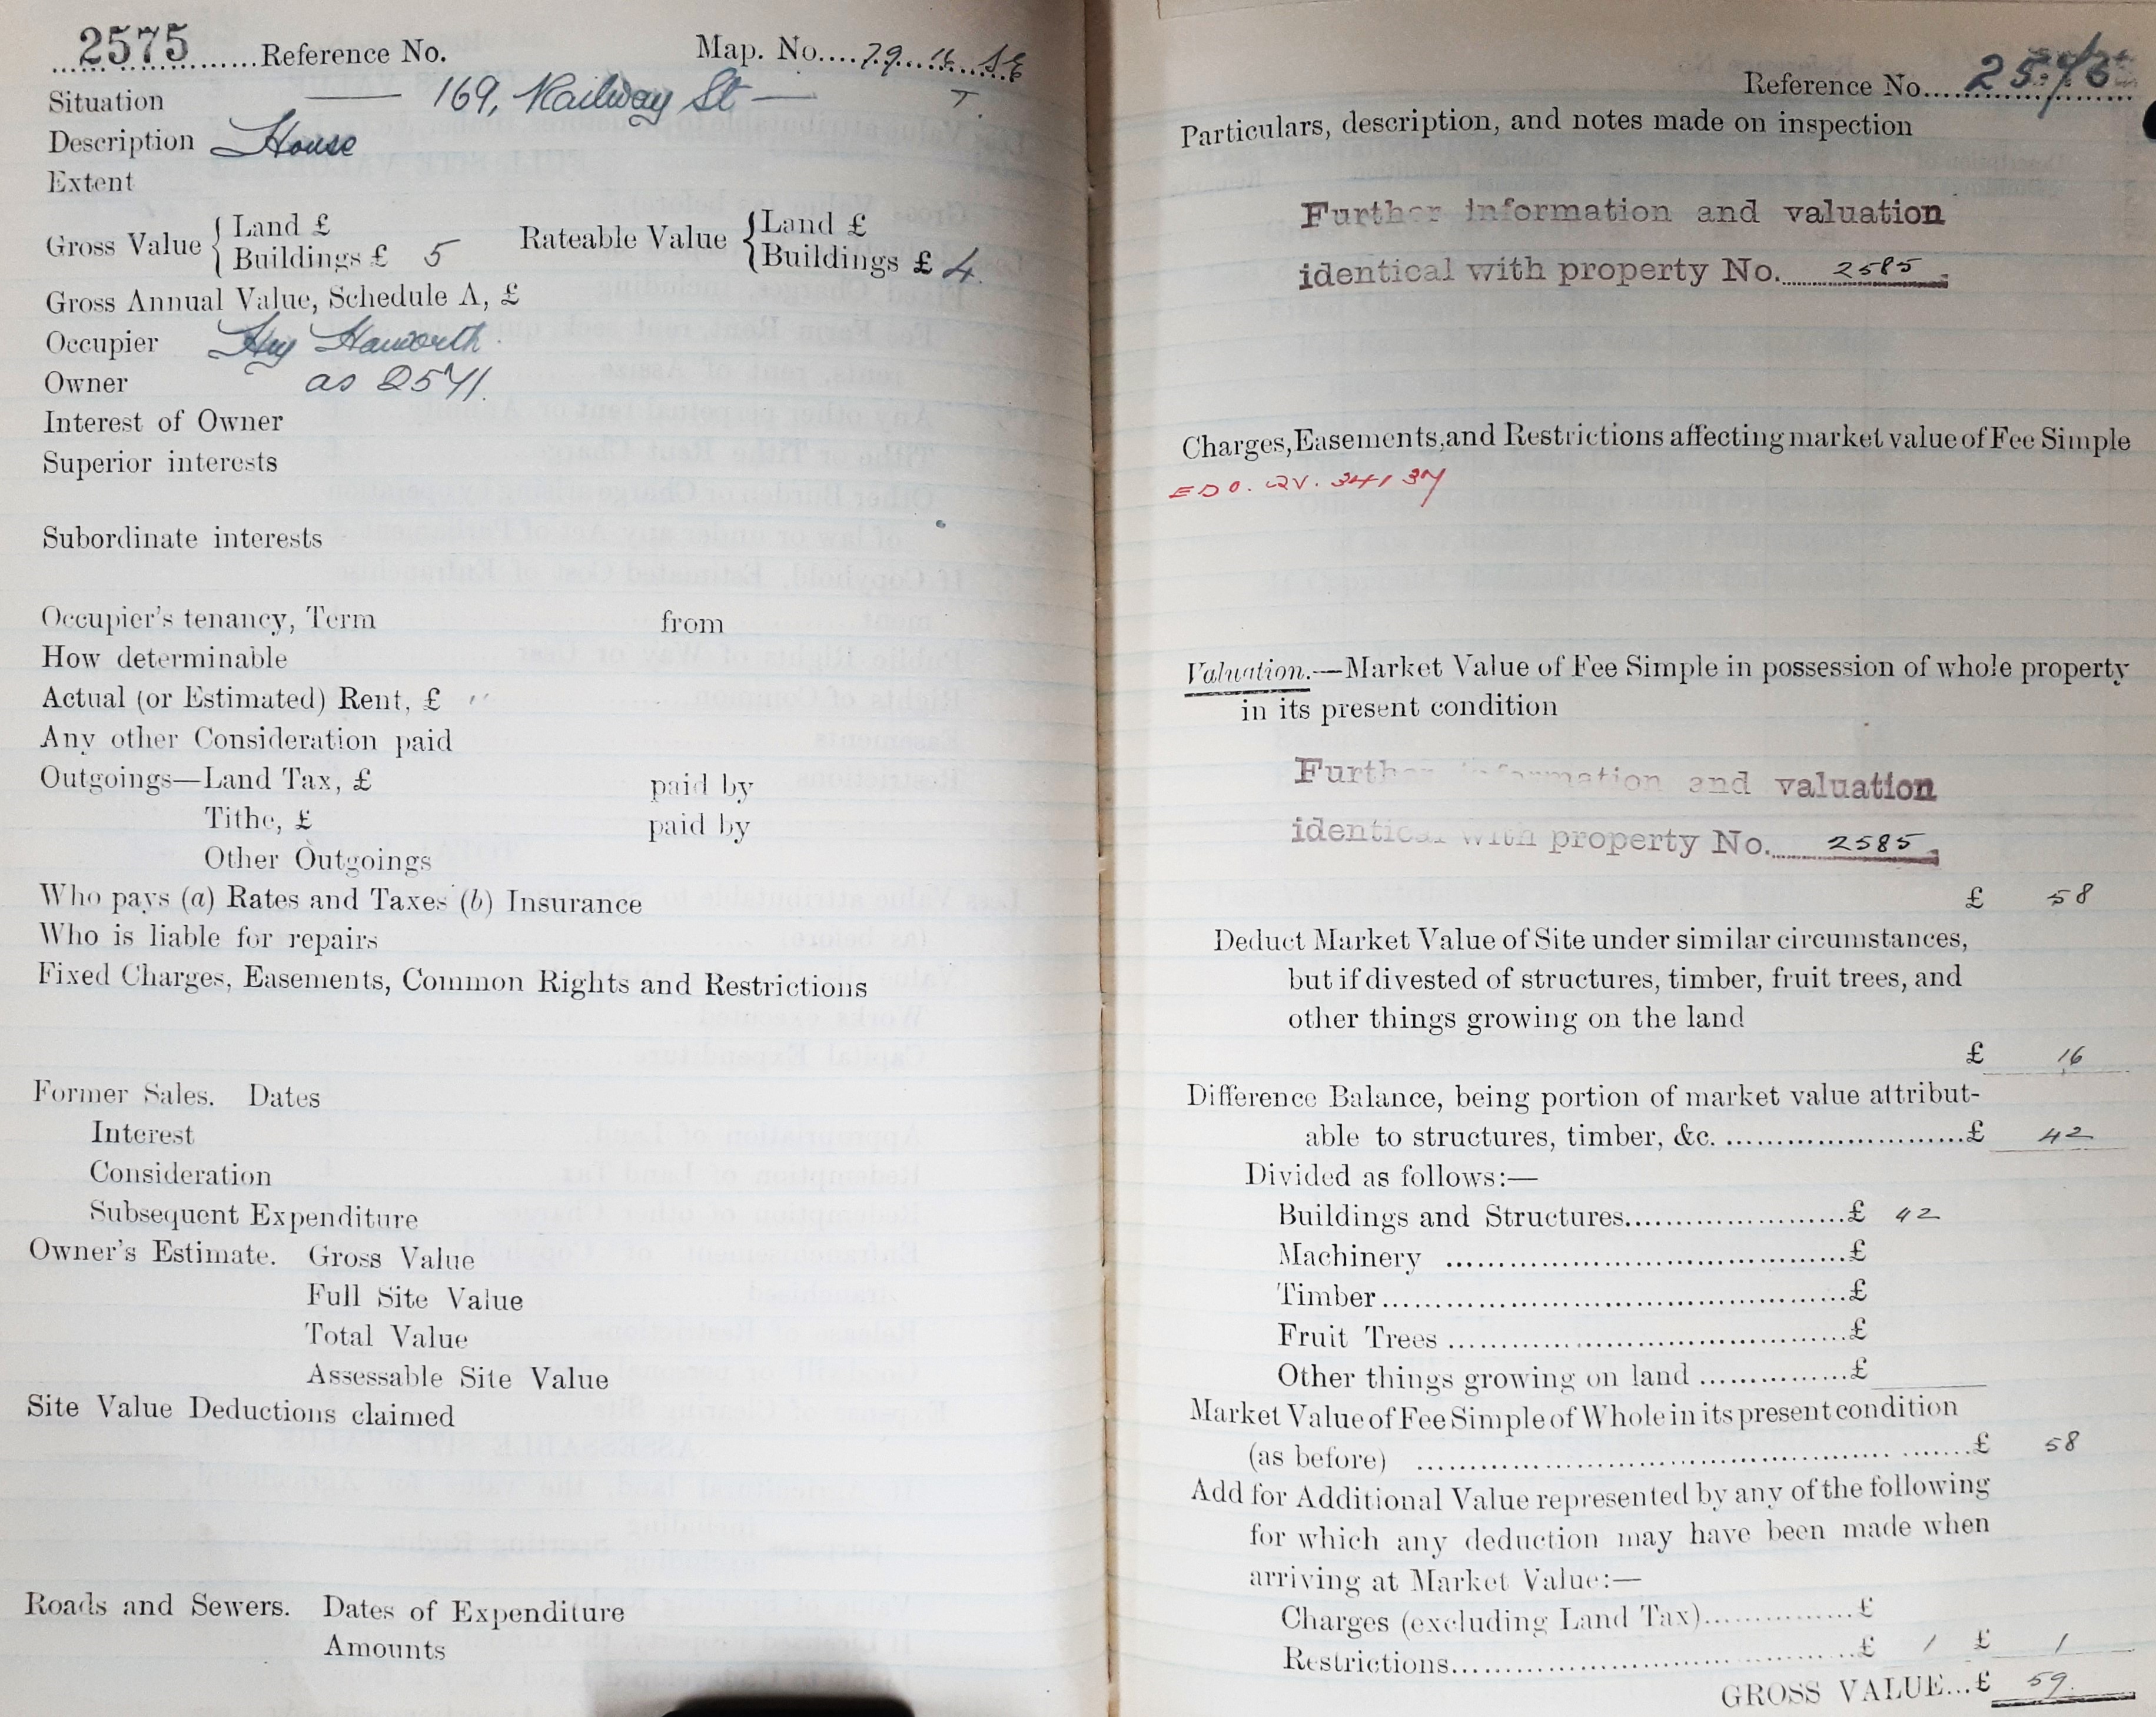 2575 Reference No. Map. No. 79.16 SE
T
Situation — 169, Railway St —
Description House
Extent
Gross Value { Land £
Buildings £ 5
Rateable Value { Land £
Buildings £ 4
Gross Annual Value, Schedule A, £
Occupier Hy Haworth
Owner as 2571.
Interest of Owner
Superior interests
Subordinate interests
Occupier's tenancy, Term from
How determinable
Actual (or Estimated) Rent, £ "
Any other Consideration paid
Outgoings—Land Tax, £ paid by
Tithe, £ paid by
Other Outgoings
Who pays (a) Rates and Taxes (b) Insurance
Who is liable for repairs
Fixed Charges, Easements, Common Rights and Restrictions
Former Sales. Dates
Interest
Consideration
Subsequent Expenditure
Owner's Estimate. Gross Value
Full Site Value
Total Value
Assessable Site Value
Site Value Deductions claimed
Roads and Sewers. Dates of Expenditure
Amounts
Reference No. 2575
Particulars, description, and notes made on inspection
Further information and valuation
identical with property No. 2585
Charges, Easements, and Restrictions affecting market value of Fee Simple
Valuation.—Market Value of Fee Simple in possession of whole property
in its present condition
Further information and valuation
identical with property No. 2585
£ 58
Deduct Market Value of Site under similar circumstances,
but if divested of structures, timber, fruit trees, and
other things growing on the land
£ 16
Difference Balance, being portion of market value attribut-
able to structures, timber, &c. ........................£ 42
Divided as follows:—
Buildings and Structures........................£ 42
Machinery ........................£
Timber........................£
Fruit Trees ........................£
Other things growing on land ...............£
Market Value of Fee Simple of Whole in its present condition
(as before) ........................£ 58
Add for Additional Value represented by any of the following
for which any deduction may have been made when
arriving at Market Value:—
Charges (excluding Land Tax)...............£
Restrictions........................£ 1 £ 1
GROSS VALUE...£ 59.